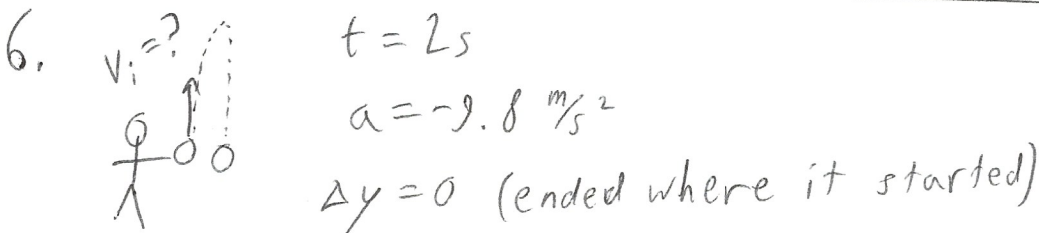 6. Vi=? t = 2s
a = -9.8 m/s²
Δy = 0 (ended where it started)